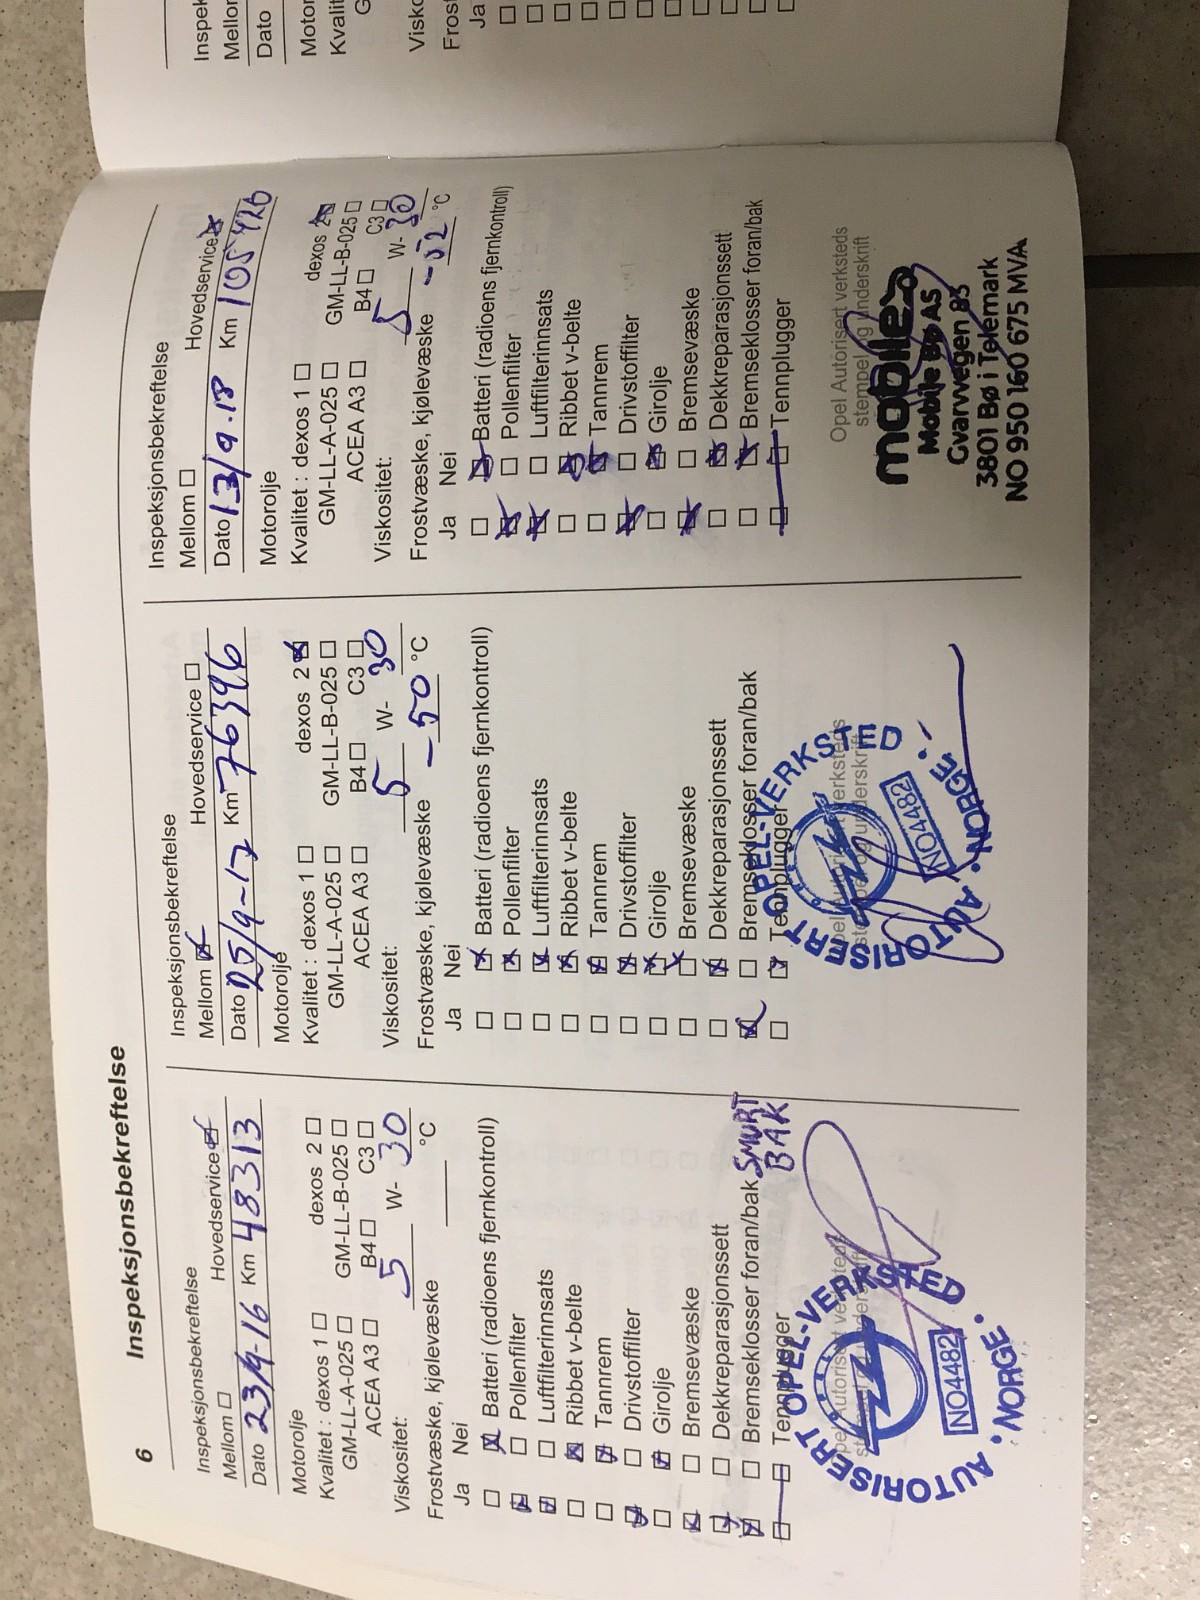 6 Inspeksjonsbekreftelse
Inspeksjonsbekreftelse
Mellom ☐ Hovedservice ☒
Dato 23/9-16 Km 48313
Motorolje
Kvalitet : dexos 1 ☐ dexos 2 ☐
GM-LL-A-025 ☐ GM-LL-B-025 ☐
ACEA A3 ☐ B4 ☐ C3 ☐
Viskositet: 5 W- 30
Frostvæske, kjølevæske °C
Ja Nei
☐ ☒ Batteri (radioens fjernkontroll)
☒ ☐ Pollenfilter
☒ ☐ Luftfilterinnsats
☐ ☒ Ribbet v-belte
☐ ☒ Tannrem
☒ ☐ Drivstoffilter
☐ ☒ Girolje
☒ ☐ Bremsevæske
☒ ☐ Dekkreparasjonssett
☒ ☐ Bremseklosser foran/bak SMURT BAK
☐ ☐ Tennplugger
AUTORISERT OPEL-VERKSTED
NO4482
NORGE
Inspeksjonsbekreftelse
Mellom ☒ Hovedservice ☐
Dato 25/9-17 Km 76396
Motorolje
Kvalitet : dexos 1 ☐ dexos 2 ☒
GM-LL-A-025 ☐ GM-LL-B-025 ☐
ACEA A3 ☐ B4 ☐ C3 ☐
Viskositet: 5 W- 30
Frostvæske, kjølevæske -50 °C
Ja Nei
☐ ☒ Batteri (radioens fjernkontroll)
☐ ☒ Pollenfilter
☐ ☒ Luftfilterinnsats
☐ ☒ Ribbet v-belte
☐ ☒ Tannrem
☐ ☒ Drivstoffilter
☐ ☒ Girolje
☐ ☒ Bremsevæske
☐ ☒ Dekkreparasjonssett
☒ ☐ Bremseklosser foran/bak
☐ ☒ Tennplugger
AUTORISERT OPEL-VERKSTED
NO4482
NORGE
Inspeksjonsbekreftelse
Mellom ☐ Hovedservice ☒
Dato 13/9.18 Km 105420
Motorolje
Kvalitet : dexos 1 ☐ dexos 2 ☒
GM-LL-A-025 ☐ GM-LL-B-025 ☐
ACEA A3 ☐ B4 ☐ C3 ☐
Viskositet: 5 W- 30
Frostvæske, kjølevæske -52 °C
Ja Nei
☐ ☒ Batteri (radioens fjernkontroll)
☒ ☐ Pollenfilter
☒ ☐ Luftfilterinnsats
☐ ☒ Ribbet v-belte
☐ ☒ Tannrem
☒ ☐ Drivstoffilter
☐ ☒ Girolje
☒ ☐ Bremsevæske
☐ ☒ Dekkreparasjonssett
☐ ☒ Bremseklosser foran/bak
☐ ☐ Tennplugger
Opel Autorisert verksteds
stempel og underskrift
mobile
Mobile Bø AS
Gvarvvegen 83
3801 Bø i Telemark
NO 950 160 675 MVA